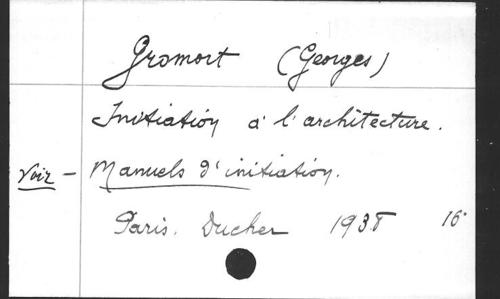 Gromort (Georges)
Initiation à l'architecture.
Voir - Manuels d'initiation.
Paris. Ducher 1938 16°